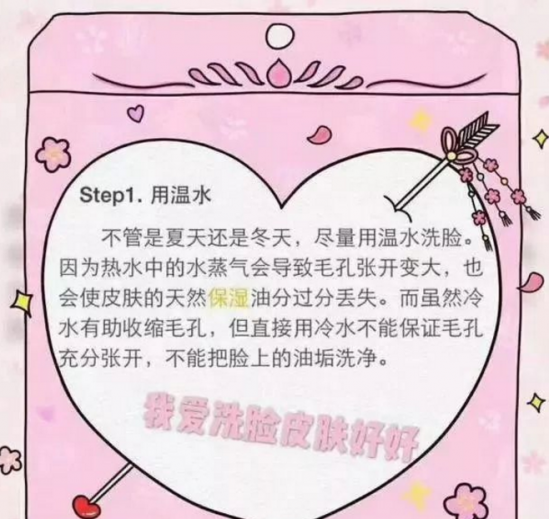 Step1. 用温水
不管是夏天还是冬天，尽量用温水洗脸。
因为热水中的水蒸气会导致毛孔张开变大，也
会使皮肤的天然保湿油分过分丢失。而虽然冷
水有助收缩毛孔，但直接用冷水不能保证毛孔
充分张开，不能把脸上的油垢洗净。
我爱洗脸皮肤好好